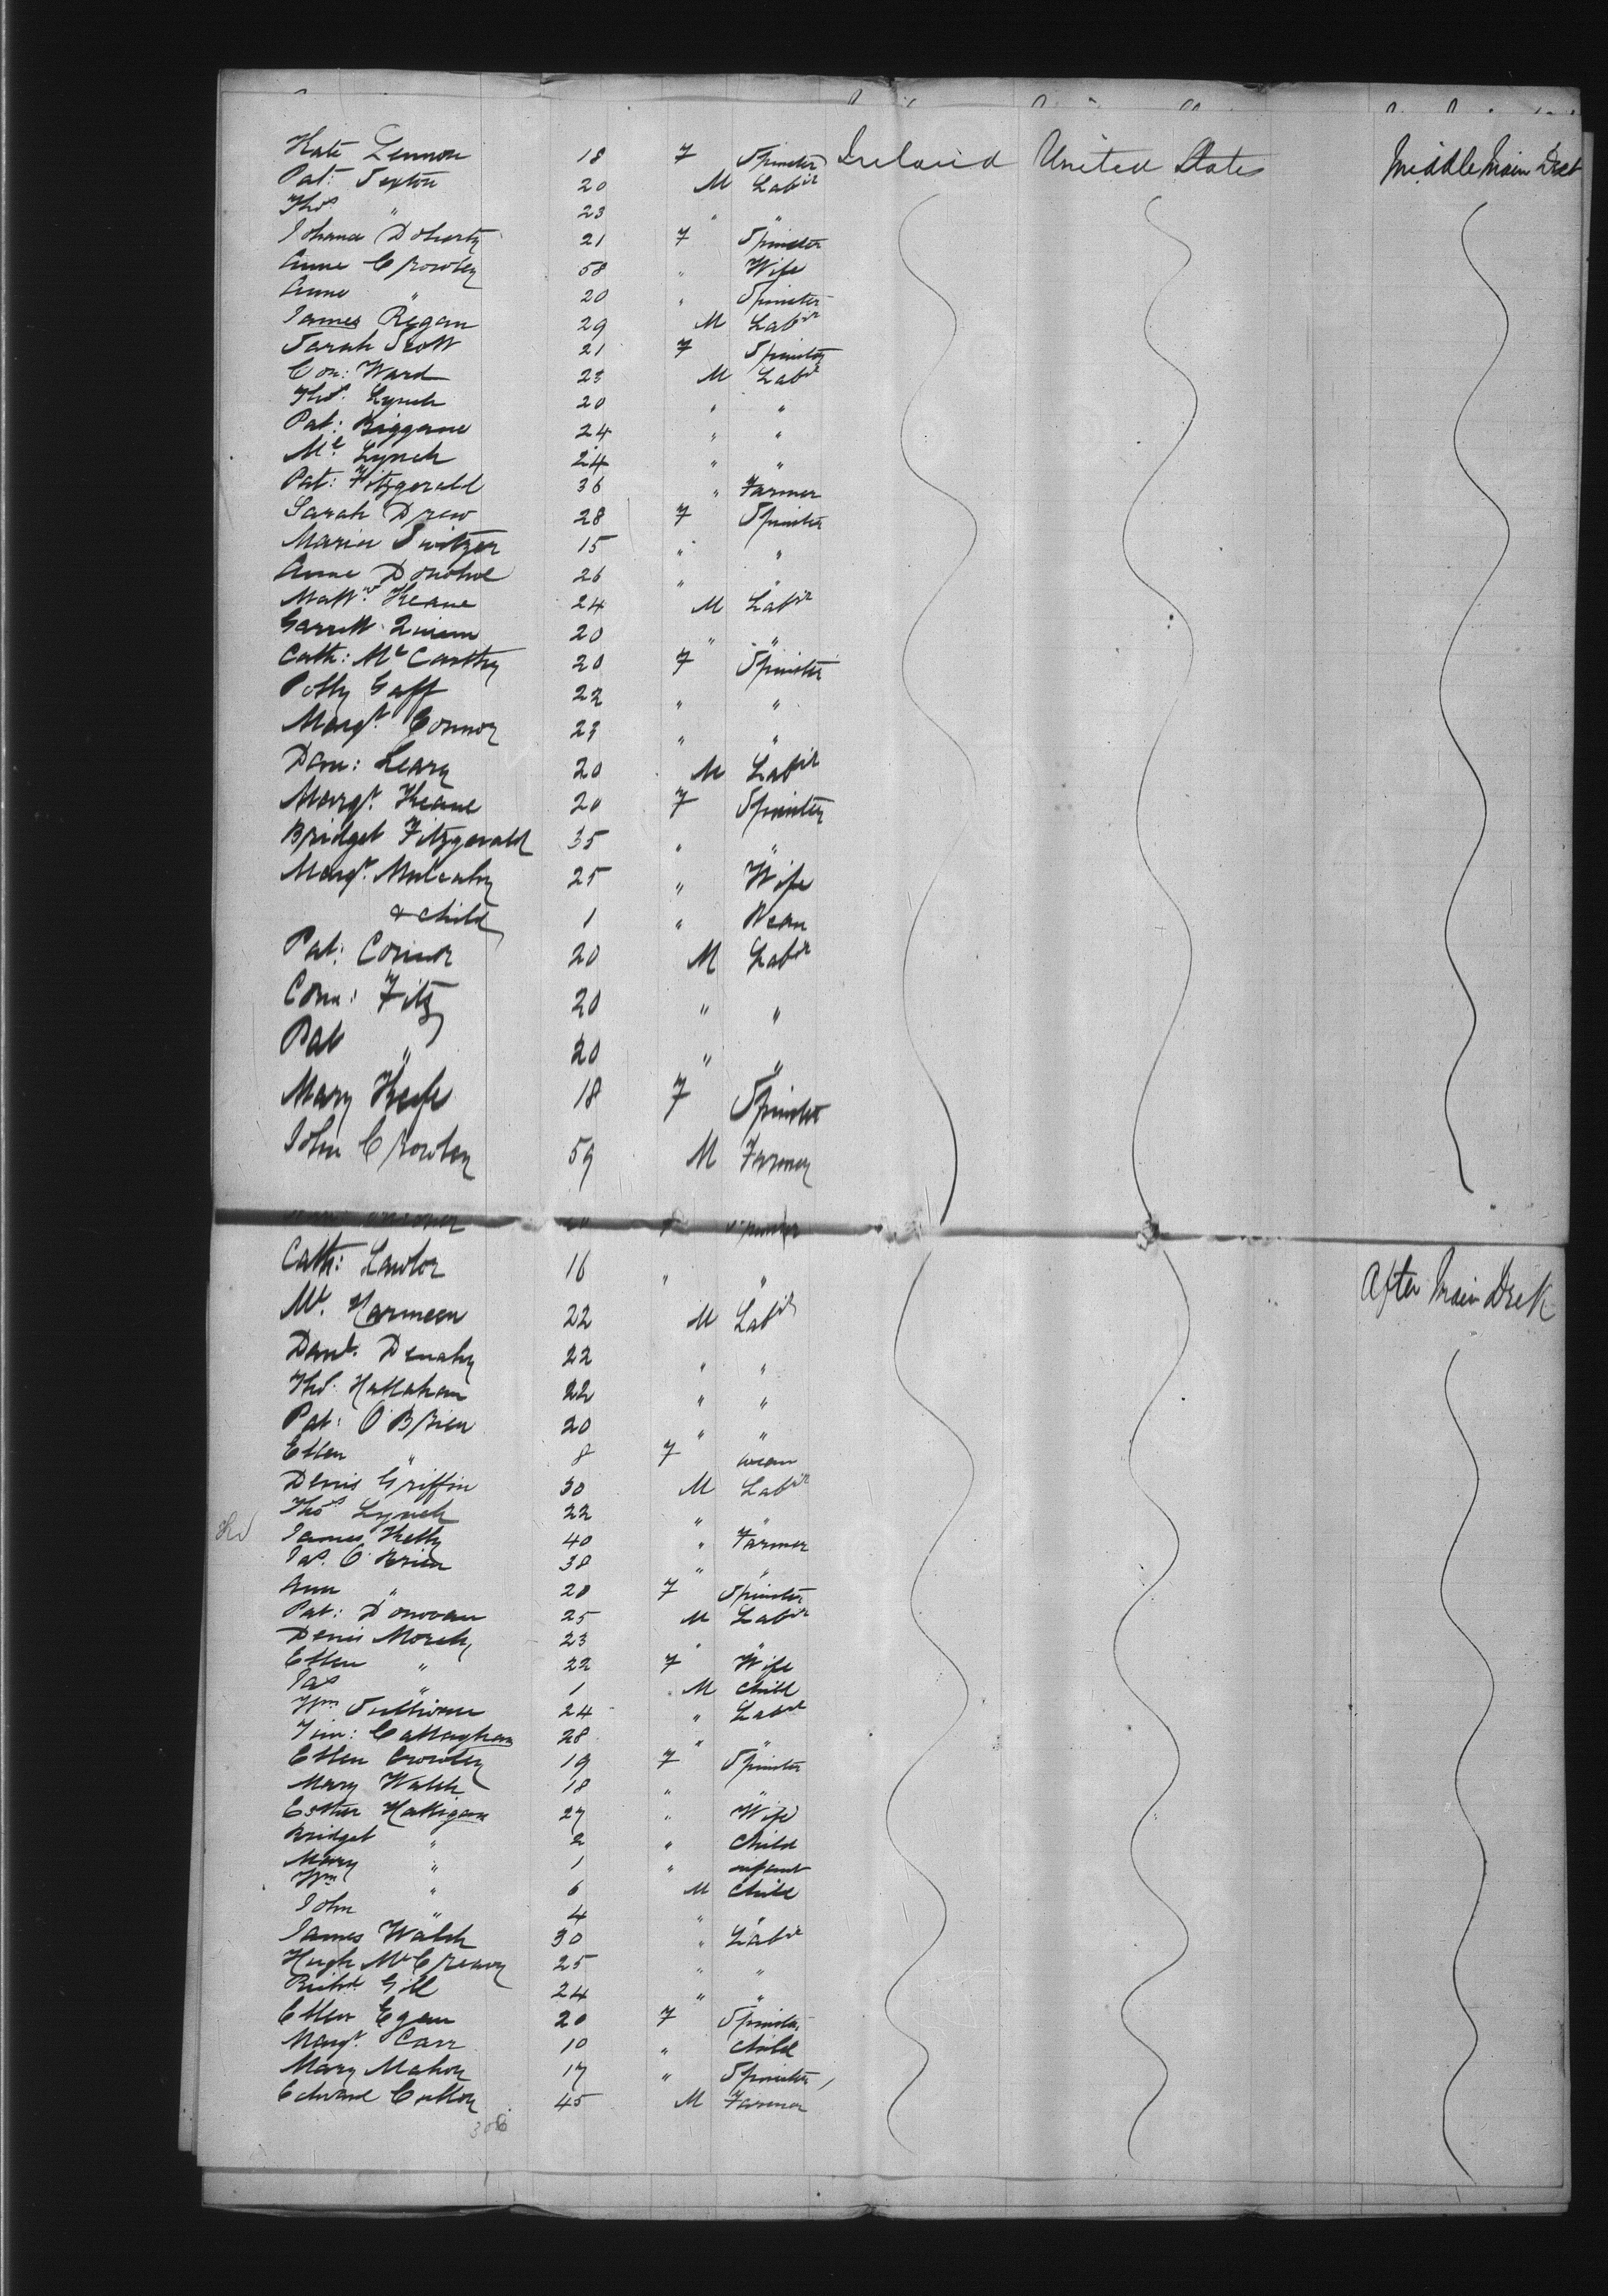 Kate Lennon 18 F Spinster Ireland United States Middle Main Deck
Pat: Sexton 20 M Labr
Thos " 23 " "
Johana Doherty 21 F Spinster
Anne Crowley 58 " Wife
Anne " 20 " Spinster
James Regan 29 M Labr
Sarah Scott 21 F Spinster
Con: Ward 23 M Labr
Thos. Lynch 20 " "
Pat: Biggane 24 " "
Ml Lynch 24 " "
Pat: Fitzgerald 36 " Farmer
Sarah Drew 28 F Spinster
Maria Switzer 15 " "
Anne Donohoe 26 " "
Mattw Keane 24 M Labr
Garrett Quinn 20 " "
Cath: McCarthy 20 F Spinster
Polly Gaff 22 " "
Margt. Connor 23 " "
Dan: Leary 20 M Labr
Margt. Keane 20 F Spinster
Bridget Fitzgerald 35 " "
Margt. Mulcahy 25 " Wife
& child 1 " Wean
Pat: Connor 20 M Labr
Corn: Fitz 20 " "
Pat " 20 " "
Mary Keefe 18 F Spinster
John Crowley 59 M Farmer
Spinster
Cath: Lawlor 16 " " After Main Deck
Ml. Harmeen 22 M Labr
Danl. Denahy 22 " "
Thos. Hallahan 22 " "
Pat: O'Brien 20 " "
Ellen " 8 F wean
Denis Griffin 30 M Labr
Thos Lynch 22 " "
James Kelly 40 " Farmer
Jas. O'Brien 38 " "
Ann " 20 F Spinster
Pat: Donovan 25 M Labr
Denis Morely 23 " "
Ellen " 22 F Wife
Jas " 1 M Child
Wm Sullivan 24 " Labr
Tim: Callaghan 28 " "
Ellen Crowley 19 F Spinster
Mary Walsh 18 " "
Esther Hattigan 27 " Wife
Bridget " 2 " Child
Mary " 1 " infant
Wm " 6 M Child
John " 4 " "
James Walsh 30 " Labr
Hugh McCreary 25 " "
Richd Gill 24 " "
Ellen Egan 20 F Spinster
Margt. Carr 10 " Child
Mary Mahon 17 " Spinster
Edward Cotton 45 M Farmer